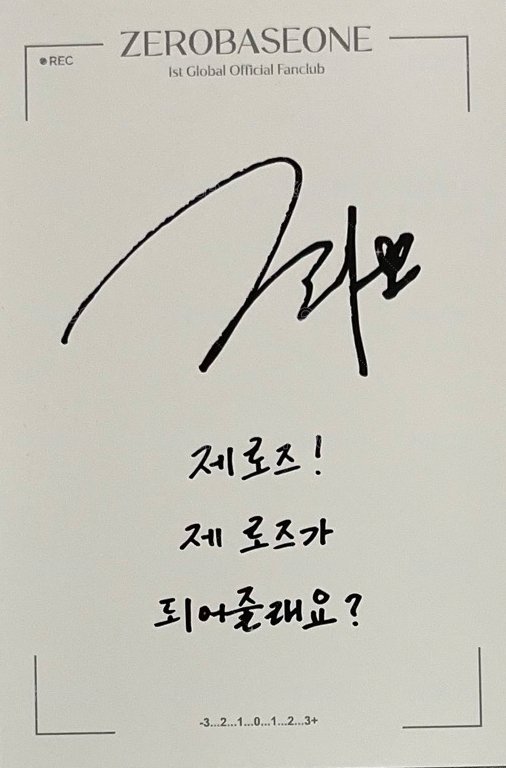 ZEROBASEONE
REC
1st Global Official Fanclub
제로즈!
제 로즈가
되어줄래요?
-3...2...1...0...1...2...3+